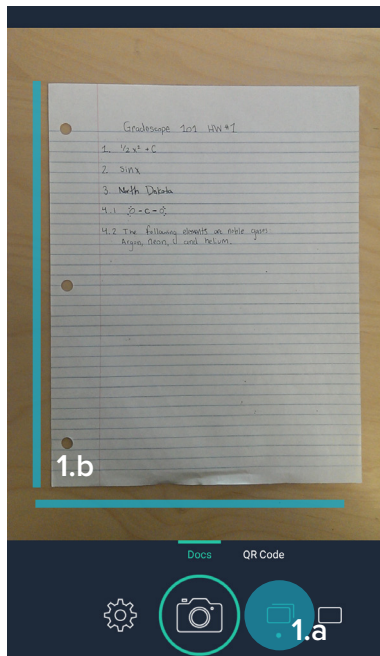 Gradescope 101 HW #1
1. 1/2 x² + C
2. sinx
3. North Dakota
4.1 :Ö-C-Ö:
4.2 The following elements are noble gases
Argon, neon, and helium.
1.b
Docs QR Code
1.a